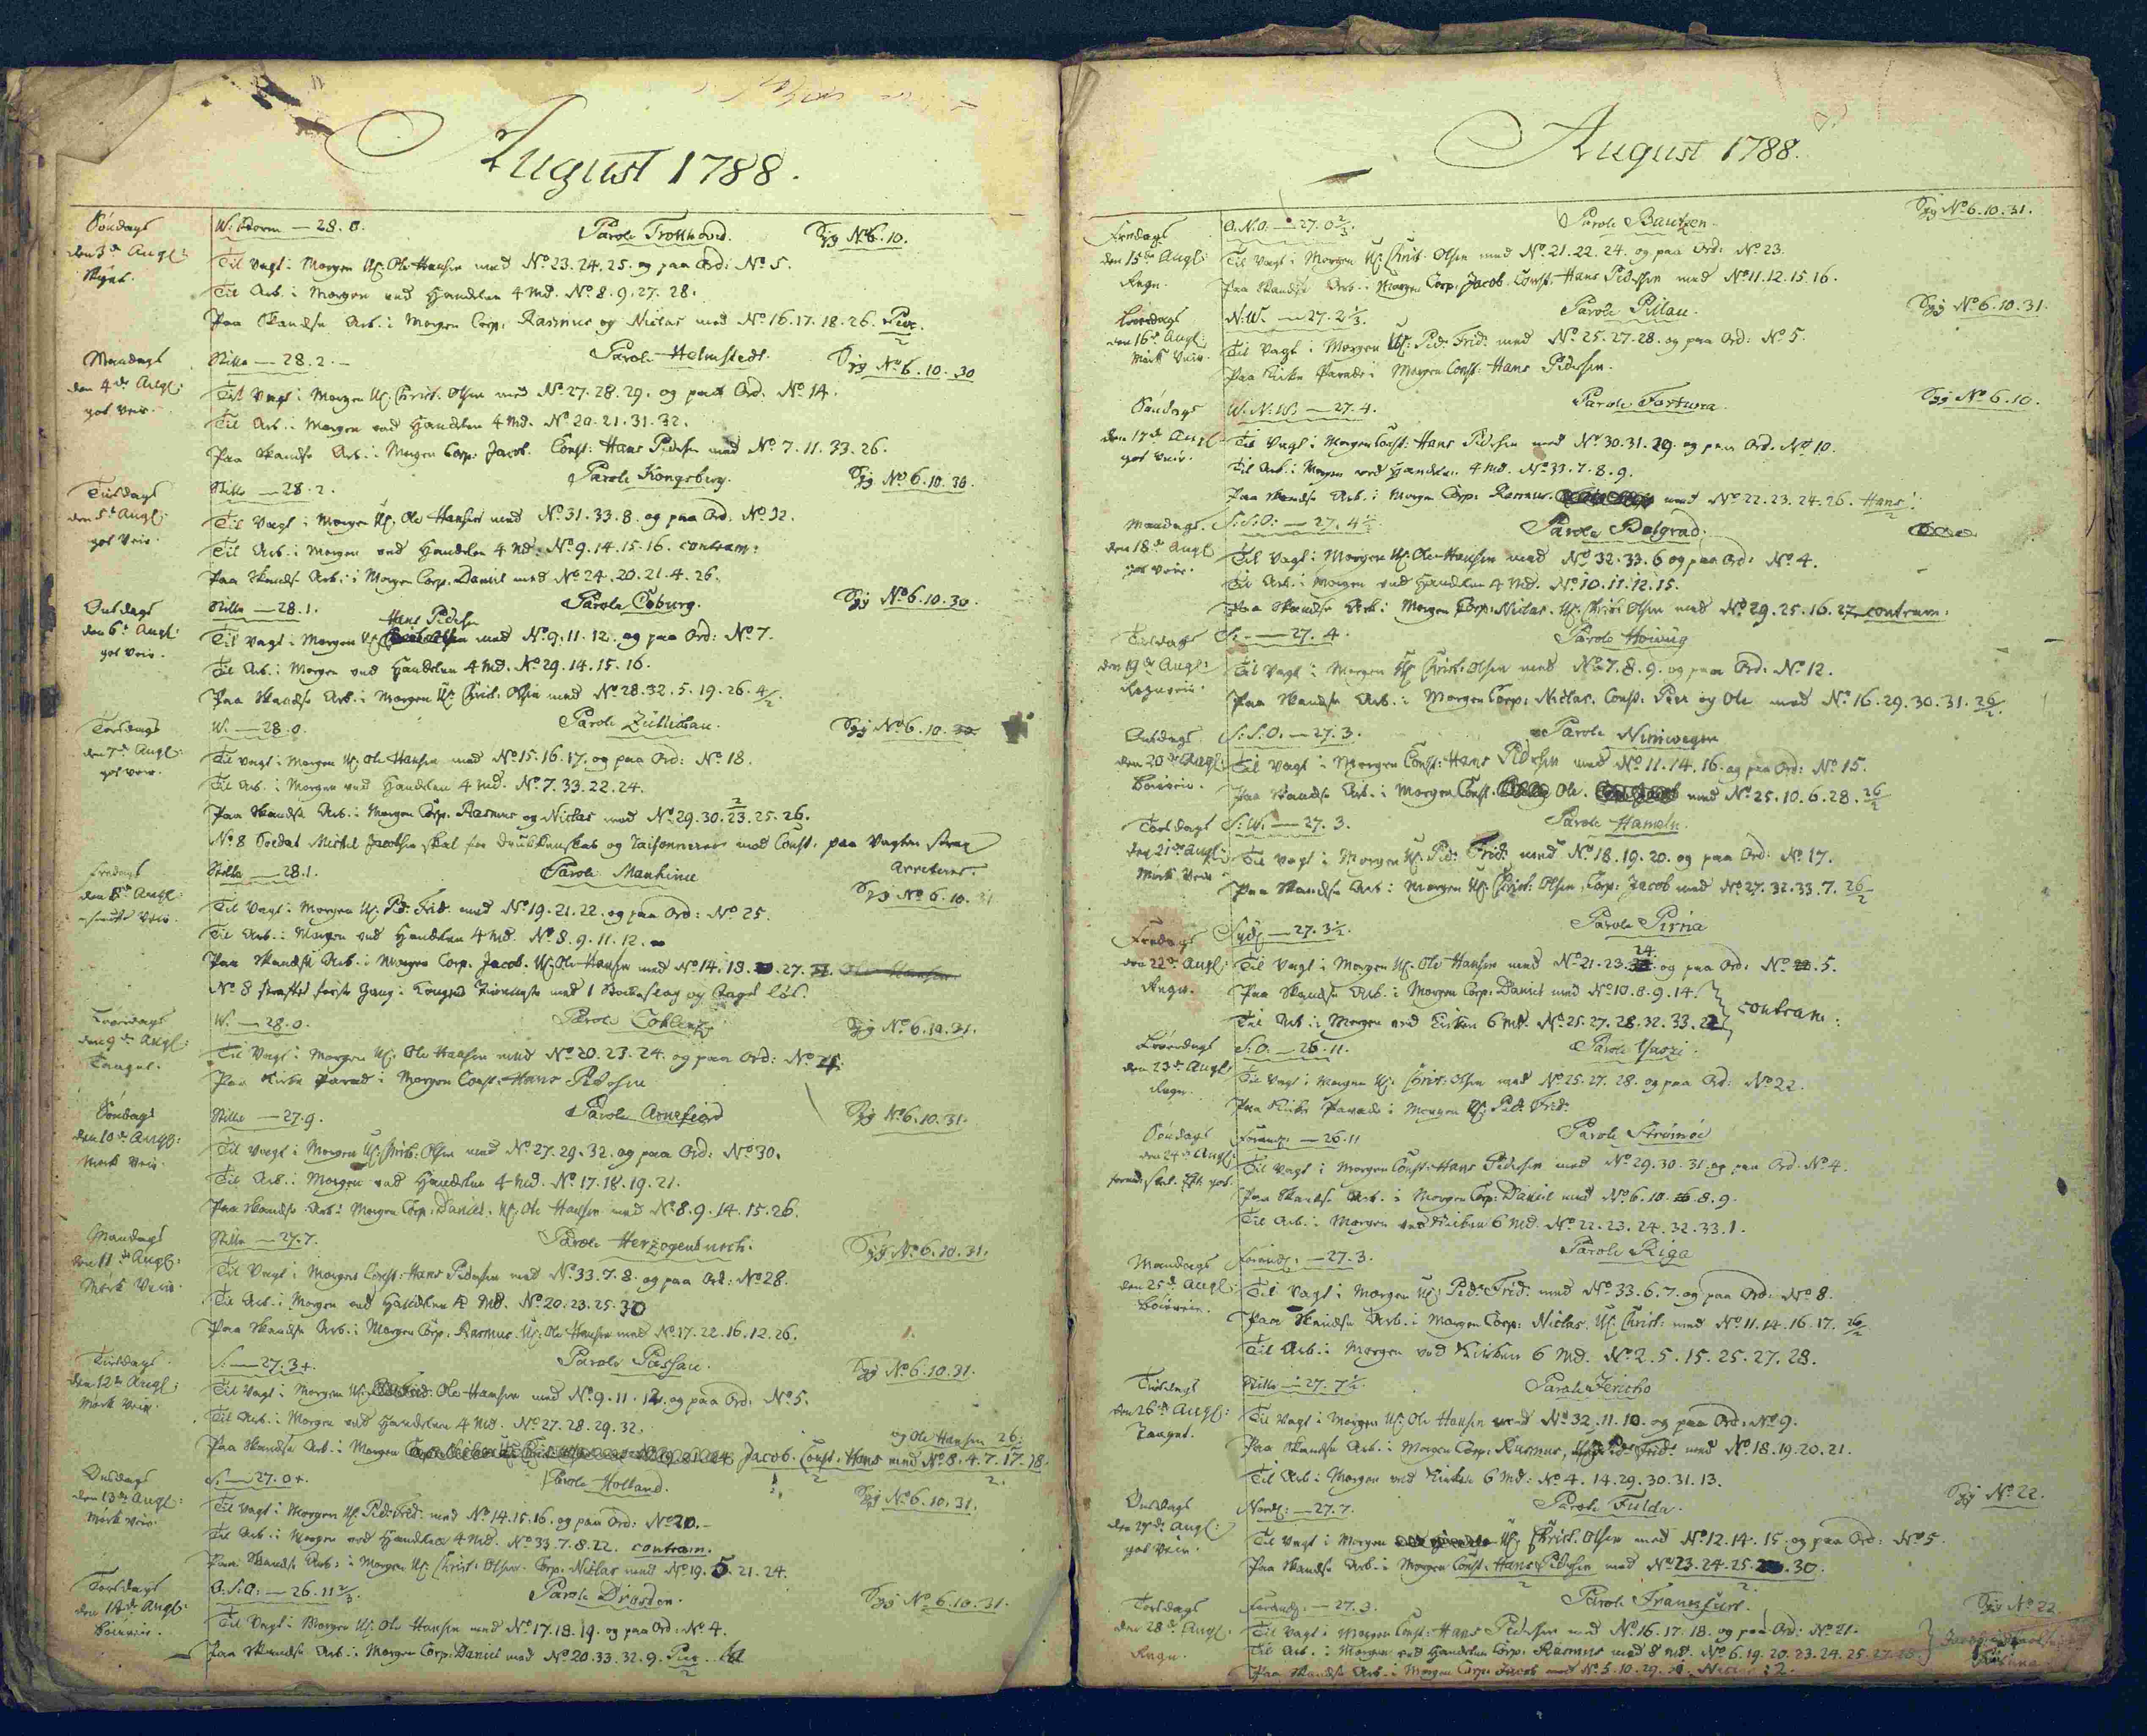 August 1788.
Søndags W. Storm — 28. 0. Parole Trotthord. Syg No 6. 10.
den 3de Augl: Til Vagt i Morgen U: Ole Hansen med No 23. 24. 25. og paa Ord: No 5.
Til Arb. i Morgen ved Handelen 4 Md. No 8. 9. 27. 28.
Paa Skandse Arb. i Morgen Corp: Rasmus og Niclas med No 16. 17. 18. 26. Peer.
Mandags Stille — 28. 2. — Parole Helmstedt. Syg No 6. 10. 30
den 4de Augl: Til Vagt i Morgen U: Christ. Olsen med No 27. 28. 29. og paa Ord. No 14.
got Veir. Til Arb. i Morgen ved Handelen 4 Md. No 20. 21. 31. 32.
Paa Skandse Arb. i Morgen Corp: Jacob. Const: Hans Pedersen med No 7. 11. 33. 26.
Tirsdags Stille — 28. 2. Parole Kongsberg. Syg No 6. 10. 30.
den 5te Augl: Til Vagt i Morgen U: Ole Hansen med No 31. 33. 8. og paa Ord. No 32.
got Veir. Til Arb. i Morgen ved Handelen 4 Md. No 9. 14. 15. 16. contram:
Paa Skandse Arb. i Morgen Corp. Daniel med No 24. 20. 21. 4. 26.
Onsdags Stille — 28. 1. Parole Coburg. Syg No 6. 10. 30.
Hans Pedersen
den 6te Augl: Til Vagt i Morgen med No 9. 11. 12. og paa Ord: No 7.
got Veir. Til Arb. i Morgen ved Handelen 4 Md. No 29. 14. 15. 16.
Paa Skandse Arb. i Morgen U: Christ. Olsen med No 28. 32. 5. 19. 26. 4/2.
Torsdags W. — 28. 0. Parole Züllichau. Syg No 6. 10. 30
den 7de Augl: Til Vagt i Morgen U: Ole Hansen med No 15. 16. 17. og paa Ord: No 18.
got Veir. Til Arb. i Morgen ved Handelen 4 Md. No 7. 33. 22. 24.
Paa Skandse Arb. i Morgen Corp. Rasmus og Niclas med No 29. 30. 23. 25. 26.
No 8 Soldat Michel Jacobsen skal for Drukkenskab og Raisonneren mod Const. paa Vagten strax
arreteres.
Fredags Stille — 28. 1. Parole Manhine Syg No 6. 10. 31
den 8de Augl: Til Vagt i Morgen U: Ped. Frid. med No 19. 21. 22. og paa Ord: No 25.
Til Arb. i Morgen ved Handelen 4 Md. No 8. 9. 11. 12.
Paa Skandse Arb. i Morgen Corp. Jacob. U: Ole Hansen med No 14. 18. 27. Ole Hansen
No 8 straffet første Gang i Kongens Tieneste med 1 Bøckeslag og Taget løs.
Løverdags W. — 28. 0. Parole Coblentz Syg No 6. 10. 31.
den 9de Augl: Til Vagt i Morgen U: Ole Hansen med No 20. 23. 24. og paa Ord: No 4.
Taaget. Paa Kirke Parad i Morgen Const. Hans Pedersen
Søndags Stille — 27. 9. Parole Arnefiord Syg No 6. 10. 31.
den 10de Augl: Til Vagt i Morgen U: Christ. Olsen med No 27. 29. 32. og paa Ord: No 30.
Mørk Veir. Til Arb. i Morgen ved Handelen 4 Md. No 17. 18. 19. 21.
Paa Skandse Arb. i Morgen Corp. Daniel. U: Ole Hansen med No 8. 9. 14. 15. 26.
Mandags Stille — 27. 7. Parole Herzogenbusch. Syg No 6. 10. 31.
den 11te Augl: Til Vagt i Morgen Const: Hans Pedersen med No 33. 7. 8. og paa Ord: No 28.
Mørk Veir. Til Arb. i Morgen ved Handelen 4 Md. No 20. 23. 25. 30
Paa Skandse Arb. i Morgen Corp. Rasmus. U: Ole Hansen med No 17. 22. 16. 12. 26.
Tirsdags S. — 27. 3+. Parole Passau. Syg No 6. 10. 31.
den 12te Augl: Til Vagt i Morgen U: Ole Hansen med No 9. 11. 12. og paa Ord. No 5.
Mørk Veir. Til Arb. i Morgen ved Handelen 4 Md. No 27. 28. 29. 32.
og Ole Hansen 26:
Paa Skandse Arb. i Morgen Jacob. Const. Hans med No 8. 4. 7. 17. 18.
Onsdags S. — 27. 0+. Parole Holland. Syg No 6. 10. 31.
den 13de Augl: Til Vagt i Morgen U: Ped: Frid: med No 14. 15. 16. og paa Ord: No 20. —
Mørk Veir. Til Arb. i Morgen ved Handelen 4 Md. No 33. 7. 8. 22. contram.
Paa Skandse Arb. i Morgen U: Christ. Olsen. Corp. Niclas med No 19. 5. 21. 24.
Torsdags O. S. O. — 26. 11 2/3. Parole Dresden. Syg No 6. 10. 31.
den 14de Augl: Til Vagt i Morgen U: Ole Hansen med No 17. 18. 19. og paa Ord: No 4.
Paa Skandse Arb. i Morgen Corp. Daniel med No 20. 33. 32. 9. Peer
August 1788.
Fredags O. N. O. — 27. 0 2/3. Parole Bautzen. Syg No 6. 10. 31.
den 15de Augl: Til Vagt i Morgen U: Christ. Olsen med No 21. 22. 24. og paa Ord: No 23.
Regn. Paa Skandse Arb. i Morgen Corp. Jacob. Const. Hans Pedersen med No 11. 12. 15. 16.
Løverdags N. W. — 27. 2 1/3. Parole Pillau. Syg No 6. 10. 31.
den 16de Augl: Til Vagt i Morgen U: Ped: Frid: med No 25. 27. 28. og paa Ord: No 5.
Mørk Veir. Paa Kirke Parade i Morgen Const: Hans Pedersen.
Søndags W. N. W. — 27. 4. Parole Fortuna. Syg No 6. 10.
den 17de Augl: Til Vagt i Morgen Const: Hans Pedersen med No 30. 31. 29. og paa Ord. No 10.
got Veir. Til Arb. i Morgen ved Handelen 4 Md. No 33. 7. 8. 9.
Paa Skandse Arb. i Morgen Corp. Rasmus. med No 22. 23. 24. 26. Hans
Mandags S. S. O: — 27. 4 1/2. Parole Belgrad.
den 18de Augl Til Vagt i Morgen U: Ole Hansen med No 32. 33. 6 og paa Ord: No 4.
got Veir. Til Arb. i Morgen ved Handelen 4 Md. No 10. 11. 12. 15.
Paa Skandse Arb. i Morgen Corp: Niclas. U: Christ. Olsen med No 29. 25. 16. 27 contram:
Tirsdags S. — 27. 4. Parole Hoiwig
den 19de Augl: Til Vagt i Morgen U: Christ. Olsen med No 7. 8. 9. og paa Ord. No 12.
Regnveir. Paa Skandse Arb. i Morgen Corp: Niclas. Const. Peer og Ole med No 16. 29. 30. 31. 26/2.
Onsdags S. S. O. — 27. 3. Parole Nimwegen
den 20de Augl: Til Vagt i Morgen Const: Hans Pedersen med No 11. 14. 16. og paa Ord: No 15.
Paa Skandse Arb. i Morgen Const. Ole. med No 25. 10. 6. 28. 26/2
Torsdags S. W. — 27. 3. Parole Hameln.
den 21de Augl: Til Vagt i Morgen U: Ped: Frid: med No 18. 19. 20. og paa Ord: No 17.
Mørk Veir Paa Skandse Arb. i Morgen U: Christ: Olsen, Corp: Jacob med No 27. 32. 33. 7. 26/2
Fredags Sydl — 27. 3 1/2. Parole Pirna
den 22de Augl: Til Vagt i Morgen U: Ole Hansen med No 21. 23. 24. og paa Ord: No 5.
Regn. Paa Skandse Arb. i Morgen Corp. Daniel med No 10. 8. 9. 14. contram:
Til Arb. i Morgen ved Kirken 6 Md. No 25. 27. 28. 32. 33. 22
Løverdags S. O. — 26. 11. Parole Yaszi.
den 23de Augl Til Vagt i Morgen U: Christ: Olsen med No 25. 27. 28. og paa Ord: No 22.
Regn. Paa Kirke Parade i Morgen U: Ped: Frid:
Søndags Forandl: — 26. 11 Parole Strömöe
den 24de Augl: Til Vagt i Morgen Const: Hans Pedersen med No 29. 30. 31 og paa Ord. No 4.
Paa Skandse Arb. i Morgen Corp: Daniel med No 6. 10. 8. 9.
Til Arb. i Morgen ved Kirken 6 Md. No 22. 23. 24. 32. 33. 1.
Mandags Forandl: — 27. 3. Parole Riga
den 25de Augl: Til Vagt i Morgen U: Ped: Frid: med No 33. 6. 7. og paa Ord: No 8.
Paa Skandse Arb. i Morgen Corp: Niclas. U: Christ: med No 11. 14. 16. 17. 26/2
Til Arb. i Morgen ved Kirken 6 Md. No 2. 5. 15. 25. 27. 28.
Tirsdags Stille — 27. 7 1/2. Parole Jericho
den 26de Augl: Til Vagt i Morgen U: Ole Hansen med No 32. 11. 10. og paa Ord: No 9.
Taaget. Paa Skandse Arb. i Morgen Corp: Rasmus, U: Ped: Frid: med No 18. 19. 20. 21.
Til Arb. i Morgen ved Kirken 6 Md: No 4. 14. 29. 30. 31. 13.
Onsdags Nordl: — 27. 7. Parole Fulda. Syg No 22.
den 27de Augl: Til Vagt i Morgen U: Christ. Olsen med No 12. 14. 15. og paa Ord: No 5.
got Veir. Paa Skandse Arb. i Morgen Const. Hans Pedersen med No 23. 24. 25. 30.
Torsdags Forandl: — 27. 3. Parole Francfurt. Syg No 22.
den 28de Augl: Til Vagt i Morgen Const: Hans Pedersen med No 16. 17. 18. og paa Ord: No 21.
Regn. Til Arb. i Morgen ved Handelen Corp. Rasmus med 8 Md. No 6. 19. 20. 23. 24. 25. 27.
Paa Skandse Arb. i Morgen Corp: Jacob med No 5. 10. 29.